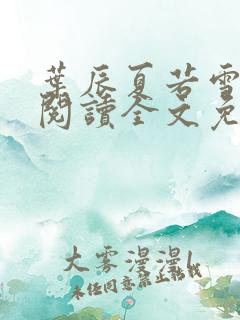 葉辰夏若雪
閱讀全文免
大雾漫漫l
未经同意禁止转载